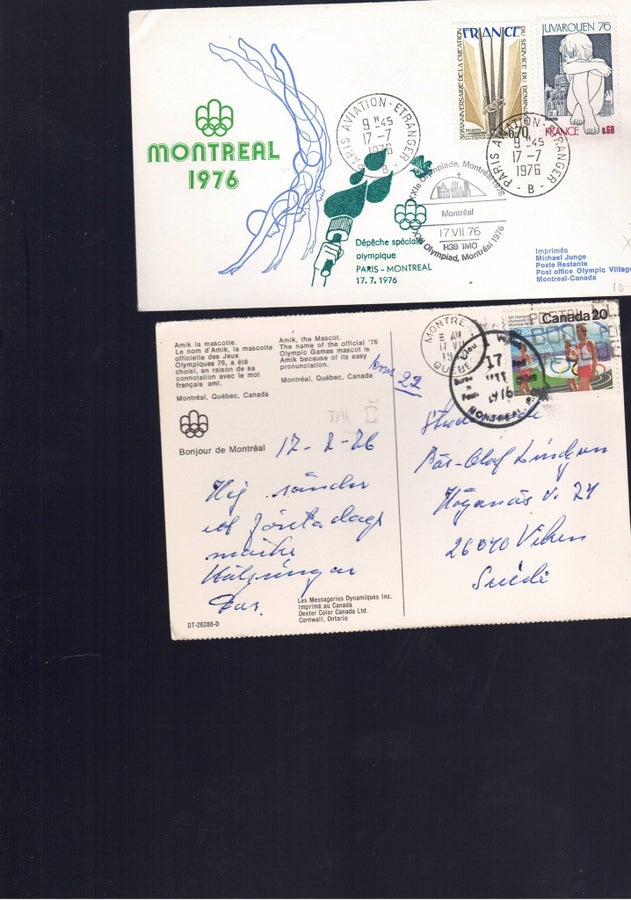 MONTREAL
1976
FRANCE
30e ANNIVERSAIRE DE LA CREATION
DU SERVICE DU DEMINAGE
0,70
POSTES
JUVAROUEN 76
FRANCE
0.60
PARIS AVIATION-ETRANGER
9 H 45
17-7
1976
B
PARIS AVIATION-ETRANGER
9 H 45
17-7
1976
- B -
XXIe Olympiade, Montréal 1976
Montréal
17 VII 76
H3B 1M0
XXI Olympiad, Montréal 1976
Dépêche spéciale
olympique
PARIS - MONTREAL
17. 7. 1976
Imprimés
Michael Junge
Poste Restante
Post office Olympic Village
Montreal-Canada
Amik la mascotte.
Le nom d'Amik, la mascotte
officielle des Jeux
Olympiques 76, a été
choisi, en raison de sa
connotation avec le mot
français ami.
Montréal, Québec, Canada
Amik, the Mascot.
The name of the official '76
Olympic Games mascot is
Amik because of its easy
pronunciation.
Montréal, Québec, Canada
22
Bonjour de Montréal
Hej sänder
ett första dags
märke
Hälsningar
Canada 20
MONTRE
AM
QUEBEC
17
1976
MONTREAL
Höganäs v. 24
26040 Viken
Suède
Les Messageries Dynamiques Inc.
Imprimé au Canada
Dexter Color Canada Ltd.
Cornwall, Ontario
DT-26288-D